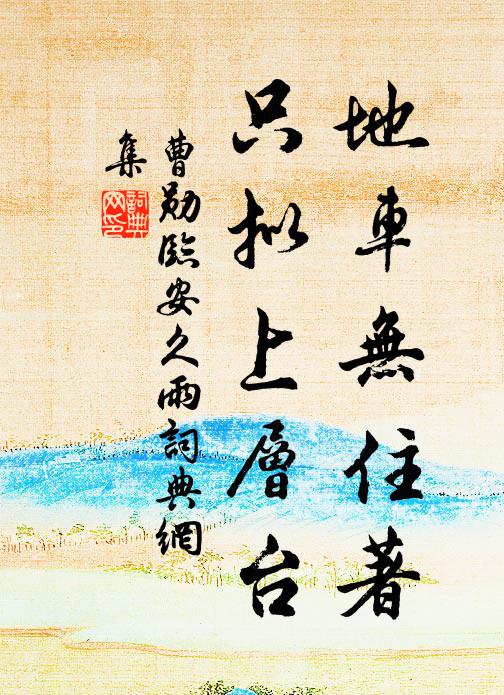 地車無住著
只拟上層台
曹勛臨安久雨詞典網
集
詞典
网印